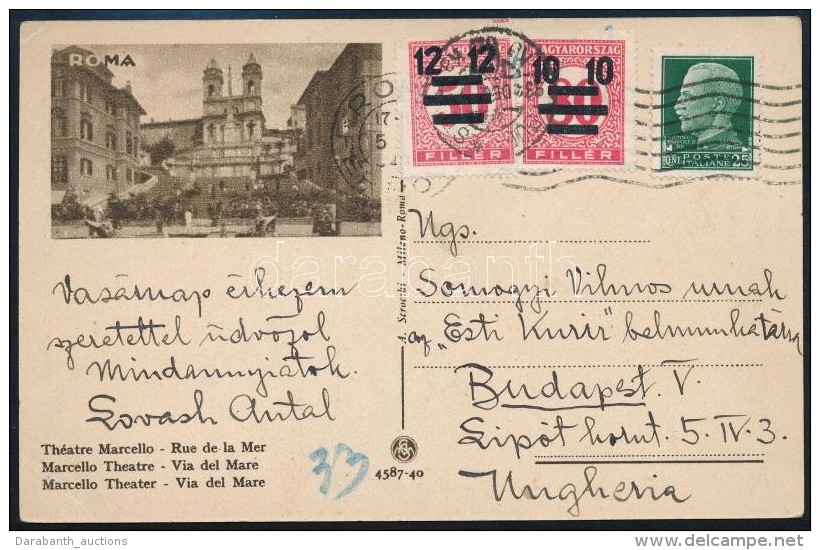 ROMA
12 12
10 10
MAGYARORSZAG
FILLÉR
FILLÉR
POSTE
ITALIANE
25
Vasárnap érkezem
szeretettel üdvözöl
Mindannyiatok.
Lovash Antal
Théatre Marcello - Rue de la Mer
Marcello Theatre - Via del Mare
Marcello Theater - Via del Mare
33
A. Scrocchi - Milano-Roma
4587-40
Ngs.
Somogyi Vilmos urnak
az „Esti Kurir" belmunkatársa
Budapest. V.
Lipót körut. 5. IV. 3.
Ungheria
darabanth
Darabanth_auctions
delcampe.net